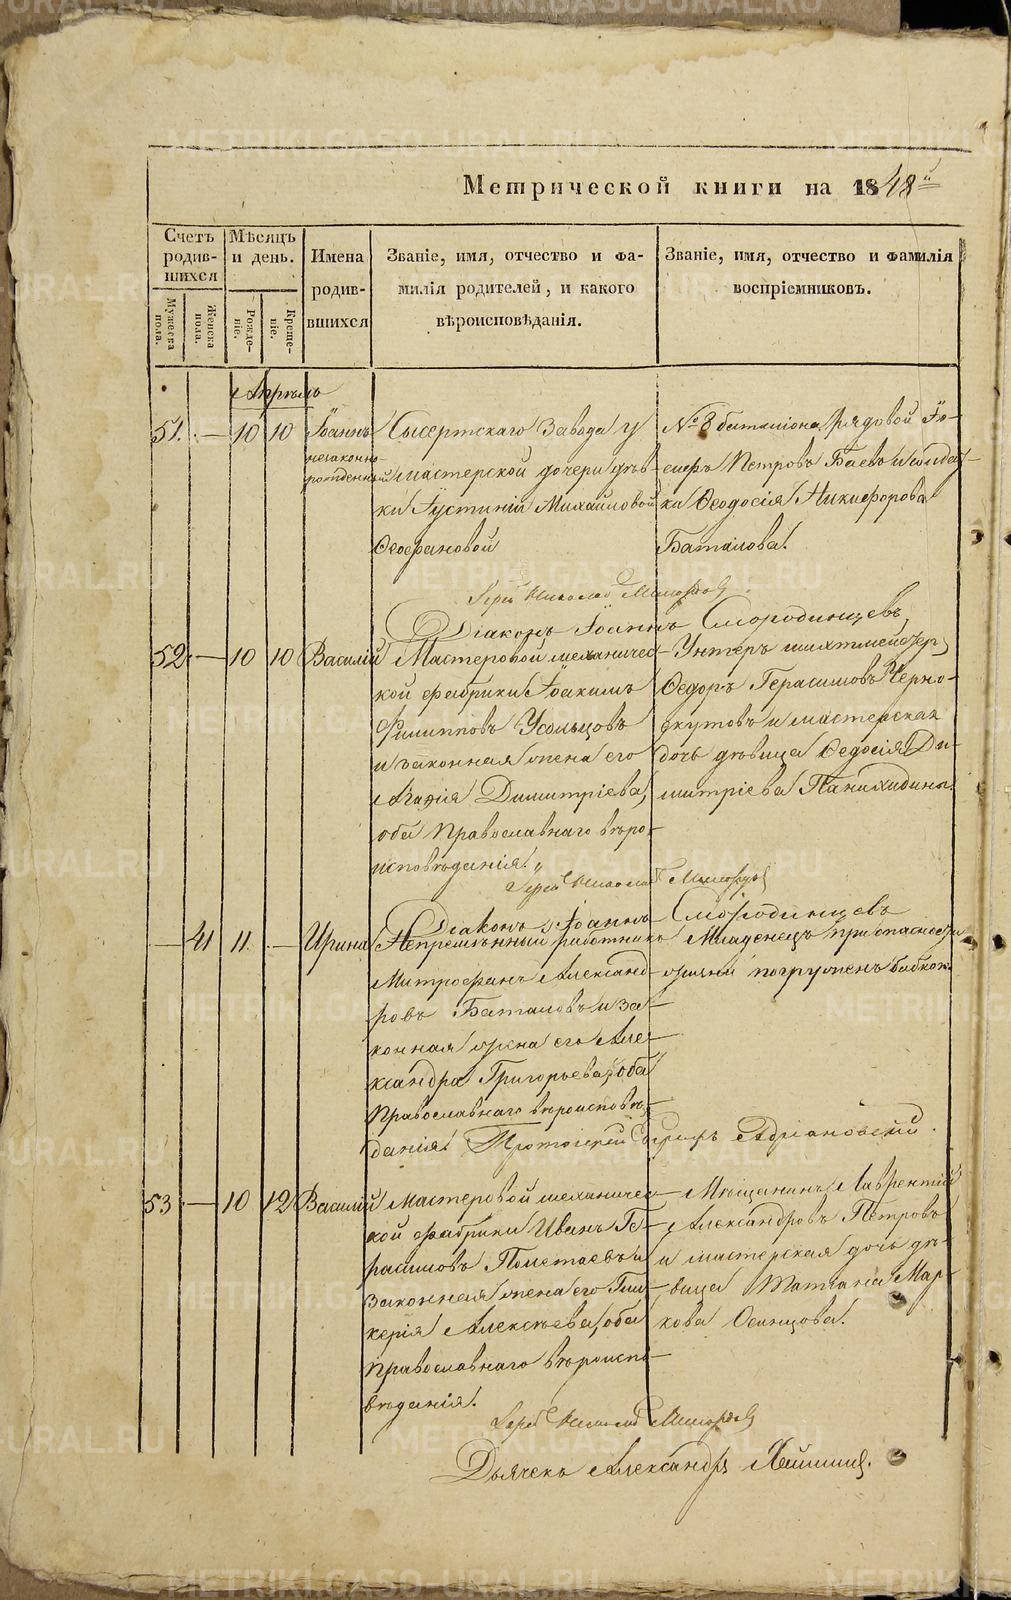 Метрической книги на 1848й
Счетъ родив-шихся
Мѣсяцъ и день.
Имена родив-шихся
Званіе, имя, отчество и фа-
милія родителей, и какого
вѣроисповѣданія.
Званіе, имя, отчество и фамилія
воспріемниковъ.
Мужеска пола.
Женска пола.
Рожде-ніе.
Креще-ніе.
Апрѣль
51. — 10 10 Іоаннъ незаконно-рожденный
Сысертскаго Завода у
мастерской дочери дѣв-
ки Іустиніи Михайловой
Ѳеофановой
№ 8 баталіона рядовой Іо-
сифъ Петровъ Баевъ и солдат-
ка Ѳеодосія Никифорова
Баталова.
Іерей Николай
Діаконъ Іоаннъ Смородинцевъ
52. — 10 10 Василій
Мастеровой механичес-
кой фабрики Іоакимъ
Филипповъ Усольцовъ
и законная жена его
Агафія Димитріева,
оба Православнаго вѣро-
исповѣданія.
Унтеръ шихтмейстеръ
Ѳедоръ Герасимовъ Черно-
скутовъ и мастерская
дочь дѣвица Ѳедосія Ди-
митріева Панихидина.
Іерей Николай
Діаконъ Іоаннъ Смородинцевъ
— 41 11. — Ирина
Непремѣнный работникъ
Митрофанъ Александ-
ровъ Баталовъ и за-
конная жена его Але-
ксандра Григорьева, оба
Православнаго вѣроисповѣ-
данія.
Младенецъ при опасности
жизни погруженъ бабкою.
Протоіерей Адріановскій.
53. — 10 12 Василій
Мастеровой механичес-
кой фабрики Иванъ Ге-
расимовъ Полетаевъ и
законная жена его Гли-
керія Алексѣева, оба
Православнаго вѣроиспо-
вѣданія.
Мѣщанинъ Лаврентій
Александровъ Петровъ
и мастерская дочь дѣ-
вица Татіана Мар-
кова Осинцова.
Іерей Николай
Дьячекъ Александръ